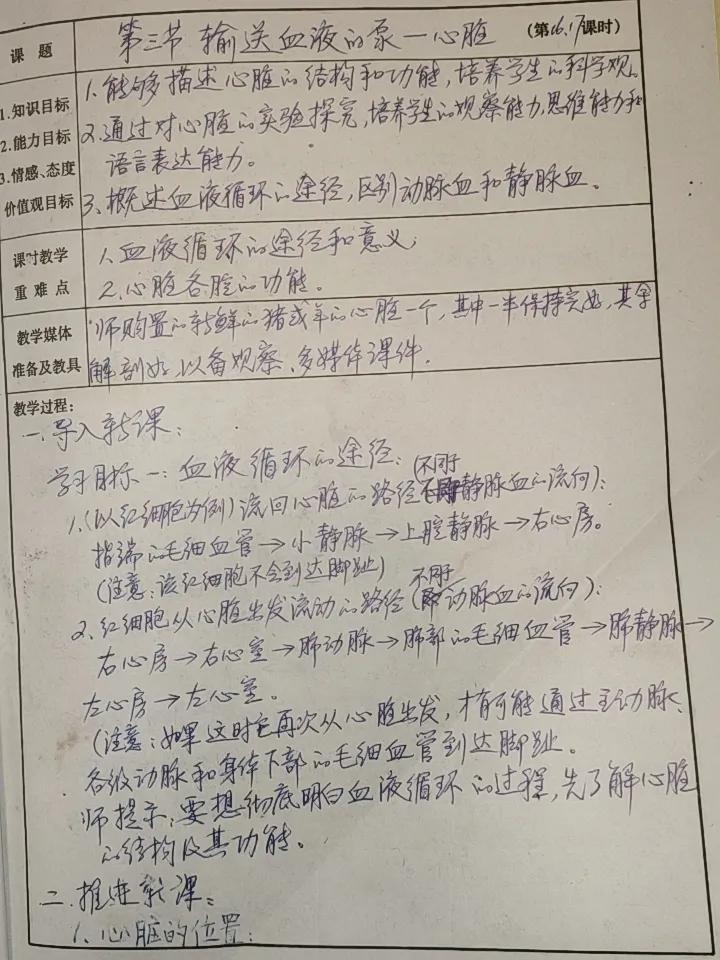 课 题 第三节 输送血液的泵—心脏 (第16.17课时)
1.知识目标
2.能力目标
3.情感、态度
价值观目标
1.能够描述心脏的结构和功能,培养学生的科学观。
2.通过对心脏的实验探究,培养学生的观察能力,思维能力和
语言表达能力。
3.概述血液循环的途径,区别动脉血和静脉血。
课时教学
重 难 点
1.血液循环的途径和意义;
2.心脏各腔的功能。
教学媒体
准备及教具
师购置的新鲜的猪或羊的心脏一个,其中一半保持完好,其余
解剖好,以备观察、多媒体课件.
教学过程:
一.导入新课:
学习目标一:血液循环的途径:
1.(以红细胞为例)流回心脏的路径(不同于静脉血的流向):
指端的毛细血管→小静脉→上腔静脉→右心房。
(注意:该红细胞不会到达脚趾)
2.红细胞从心脏出发流动的路径(不同于动脉血的流向):
右心房→右心室→肺动脉→肺部的毛细血管→肺静脉→
左心房→左心室。
(注意:如果这时它再次从心脏出发,才有可能通过主动脉、
各级动脉和身体下部的毛细血管到达脚趾。
师提示:要想彻底明白血液循环的过程,先了解心脏
的结构及其功能。
二.推进新课:
1.心脏的位置: